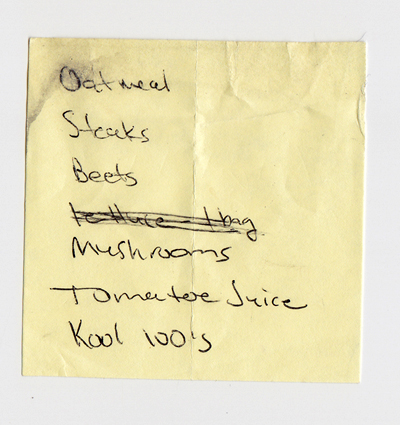 Oatmeal
Steaks
Beets
lettuce - 1 bag
Mushrooms
Tomatoe Juice
Kool 100's